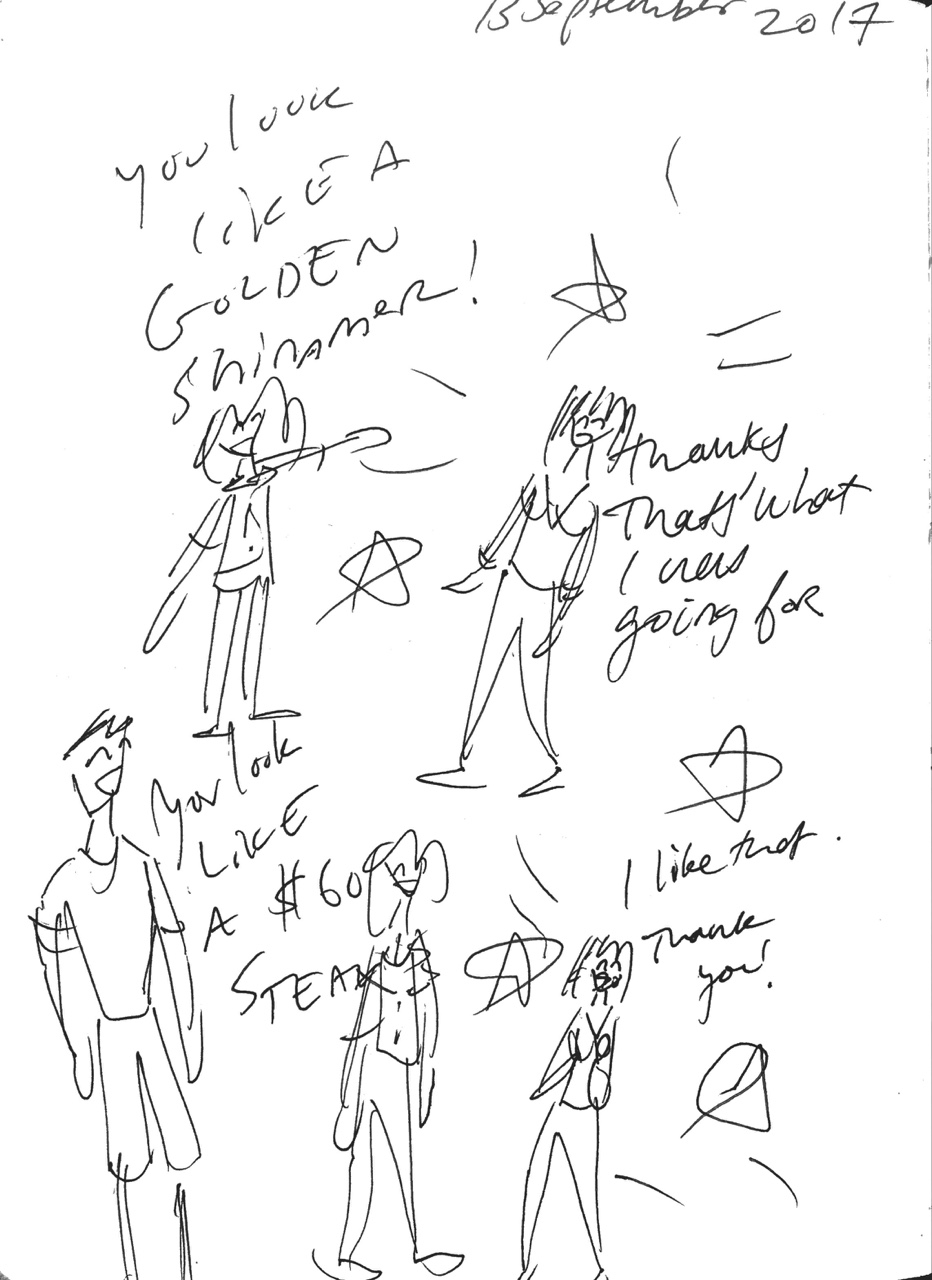 13 September 2017
you look
LIKE A
GOLDEN
Shimmer!
thanks
That's what
I was
going for
you look
LIKE
A $60
STEAK
I like that.
Thank
you!